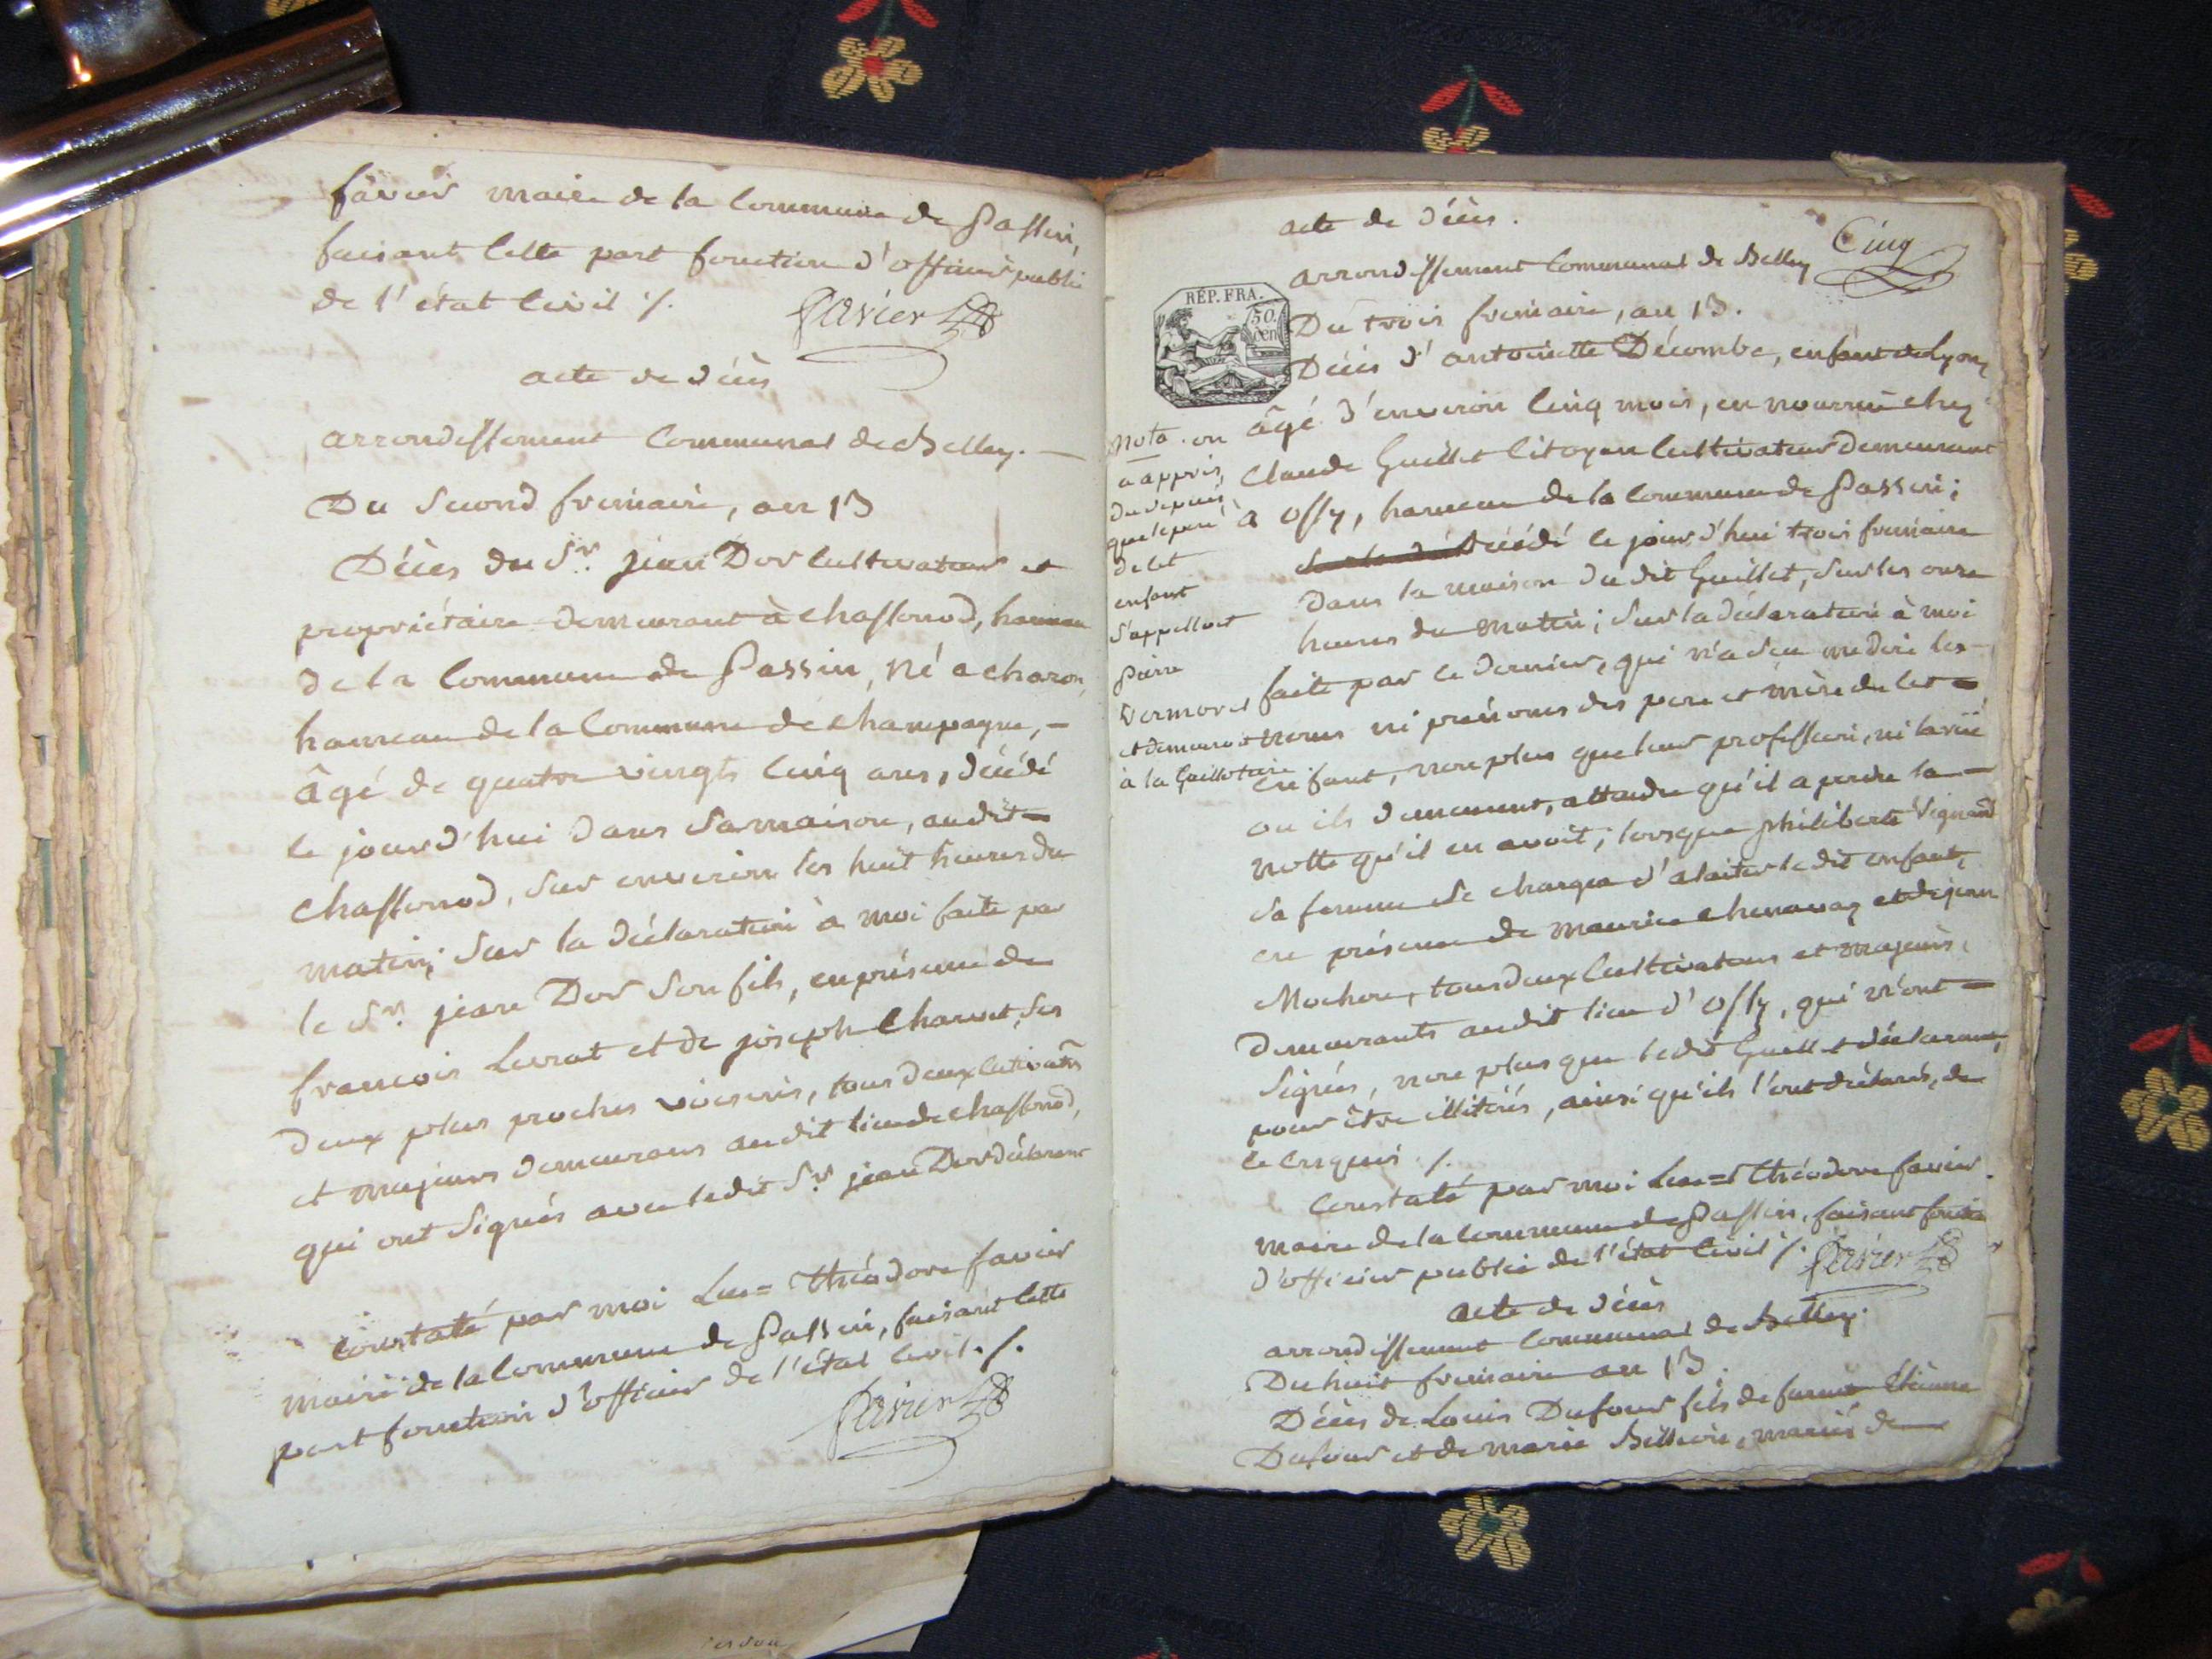 favier maire de la Commune de Passin,
faisant cette part fonction d'officier public
de l'état Civil ./.
Favier
acte de décès
arrondissement Communal de Belley. —
Du Second frimaire, an 13
Décès du Sr. jean Dor Cultivateur et
propriétaire demeurant à Chassonod, hameau
de la Commune de Passin, Né a charon,
hameau de la Commune de Champagne, —
âgé de quatre vingts cinq ans, décédé
le jourd'hui dans sa maison, audit —
Chassonod, sur environ les huit heures du
matin; Sur la déclaration à moi faite par
le Sr. jean Dor son fils, en présence de
françois Levrat et de joseph Charvet, ses
deux plus proches voisins, tous deux cultivatrs
et majeurs demeurans audit lieu de Chassonod,
qui ont Signés avec ledit Sr jean Dor déclarant
Constaté par moi Luc = Théodore favier
maire de la Commune de Passin, faisant cette
part fonction d'officier de l'état Civil ./.
Favier
acte de décès.
Cinq
arrondissement Communal de Belley
RÉP. FRA.
50.
cen
Du trois frimaire, an 13.
Décès d'antoinette Décombe, enfant de Lyon,
âgé d'environ Cinq mois, en nourrice chez
Claude Guillet Citoyen Cultivateur demeurant
à Ossy, hameau de la Commune de Passin;
décédé le jourd'hui trois frimaire
dans la maison dudit Guillet, sur les onze
heures du matin; Sur la déclaration à moi
faite par ce dernier, qui n'a Seu me dire les —
noms ni prénoms des pere et mère de cet —
enfant, non plus que leur profession, ni la rüe
ou ils demeurent, attendu qu'il a perdu la —
notte qu'il en avoit; lorsque philiberte Vignand
sa femme se chargea d'alaiter ledit enfant,
en présence de Maurice Chenavay et de jean
Mochon, tous deux Cultivateurs et majeurs,
demeurants audit lieu d'Ossy, qui n'ont —
Signés, non plus que ledit Guillet déclarant,
pour être illitérés, ainsi qu'ils l'ont déclarés, de
ce Enquis ./.
Nota. on
a appris
du depuis
que le pere
de cet
enfant
s'appelloit
Pierre
Vermorel
et demeuroit
à la Guillotiere.
Constaté par moi Luc = Théodore favier
maire de la Commune de Passin, faisant fonction
d'officier public de l'état Civil ./. Favier
acte de décès
arrondissement Communal de Belley.
Du huit frimaire an 13.
Décès de Louis Dufour fils de furent Etienne
Dufour et de marie Billion, mariés de